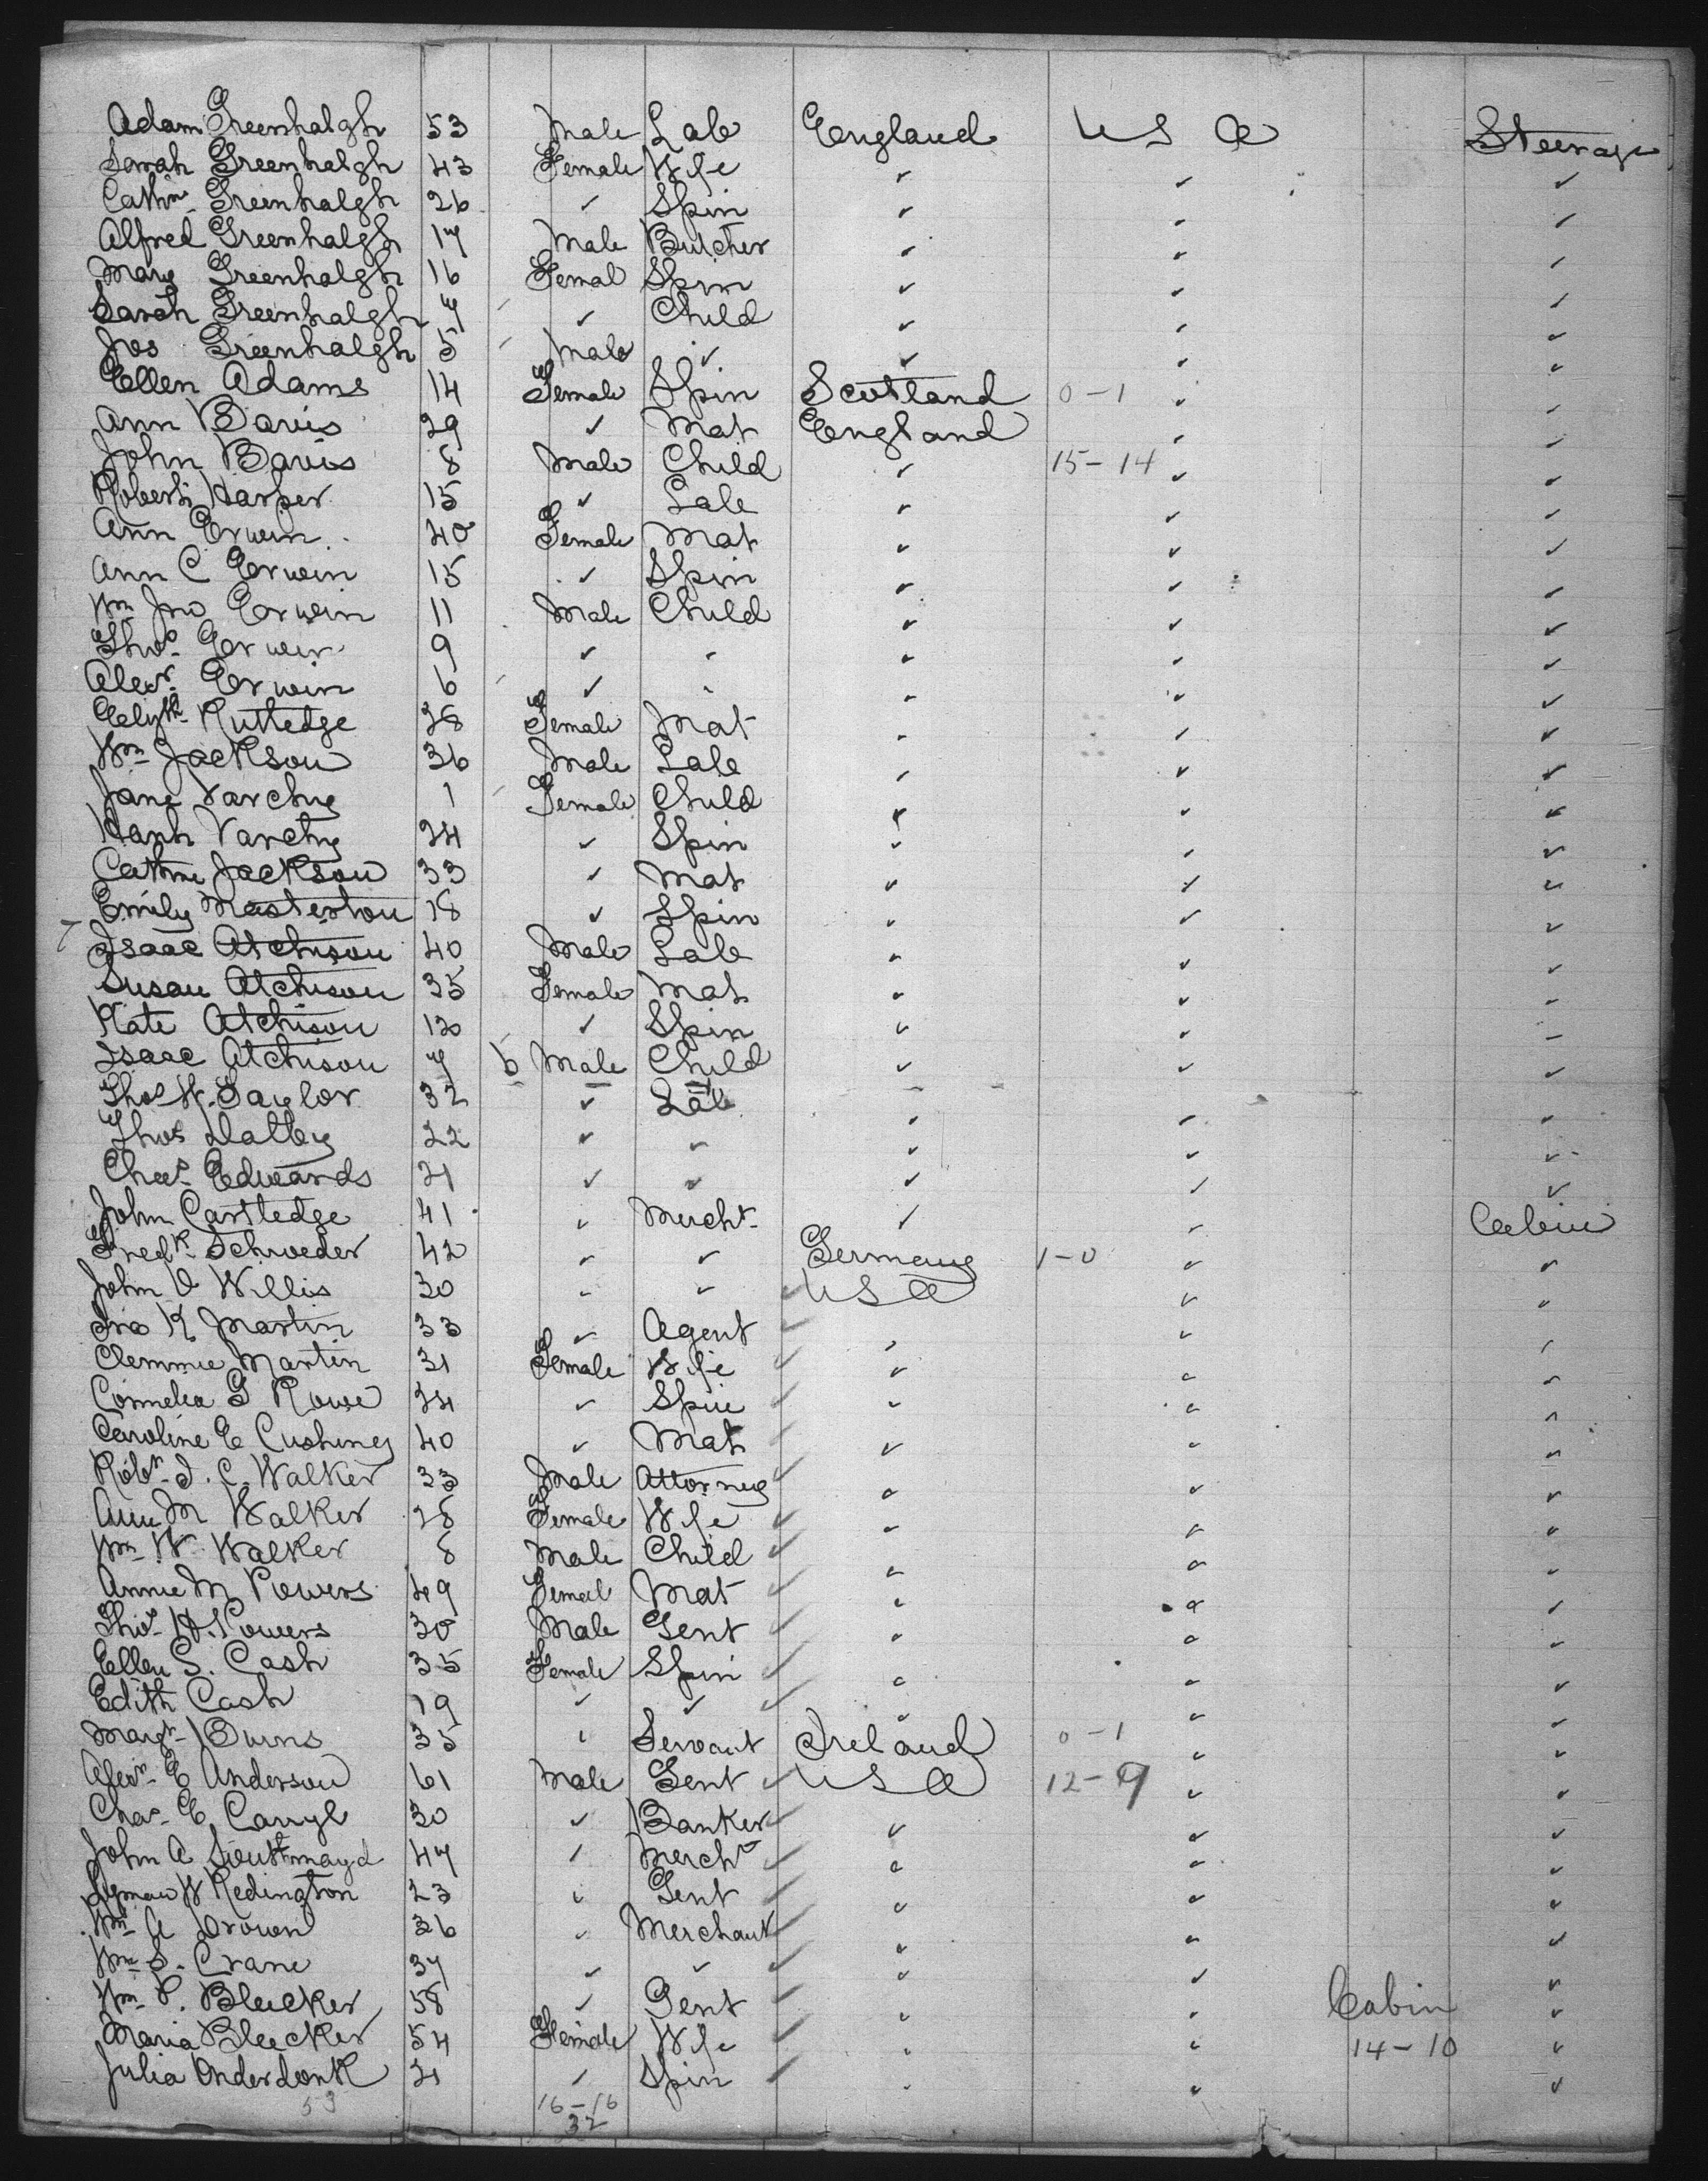 Adam Greenhalgh 53 Male Lab England U S A Steerage
Sarah Greenhalgh 43 Female Wife ✓ ✓ ✓
Cathn Greenhalgh 26 ✓ Spin ✓ ✓ ✓
Alfred Greenhalgh 17 Male Butcher ✓ ✓ ✓
Mary Greenhalgh 16 Femal Spin ✓ ✓ ✓
Sarah Greenhalgh 7 ✓ Child ✓ ✓ ✓
Jos Greenhalgh 5 Male ✓ ✓ ✓ ✓
Ellen Adams 14 Female Spin Scotland 0-1 ✓ ✓
Ann Bavis 29 ✓ Mat England ✓ ✓
John Bavis 8 Male Child ✓ 15-14 ✓ ✓
Robert Harper 15 ✓ Lab ✓ ✓ ✓
Ann Erwin 40 Female Mat ✓ ✓ ✓
Ann C Erwin 15 ✓ Spin ✓ ✓ ✓
Wm Jno Erwin 11 Male Child ✓ ✓ ✓
Thos Erwin 9 ✓ ✓ ✓ ✓ ✓
Alexr Erwin 6 ✓ ✓ ✓ ✓ ✓
Elizth Rutledge 28 Female Mat ✓ ✓ ✓
Wm Jackson 36 Male Lab ✓ ✓ ✓
Jane 1 Female Child ✓ ✓ ✓
24 ✓ Spin ✓ ✓ ✓
Cathne Jackson 33 ✓ Mat ✓ ✓ ✓
Emily Masterton 18 ✓ Spin ✓ ✓ ✓
Isaac Atchison 40 Male Lab ✓ ✓ ✓
Susan Atchison 35 Female Mat ✓ ✓ ✓
Kate Atchison 12 ✓ Spin ✓ ✓ ✓
Isaac Atchison 7 6 Male Child ✓ ✓ ✓
Thos W. Taylor 32 ✓ Lab ✓ ✓ ✓
Thos Dalby 22 ✓ ✓ ✓ ✓ ✓
Chas Edwards 21 ✓ ✓ ✓ ✓ ✓
John Cartledge 41 ✓ Mercht ✓ ✓ Cabin
Fredk Schroeder 42 ✓ ✓ Germany 1-0 ✓ ✓
John V Willis 30 ✓ ✓ U S A ✓ ✓
Ira K Martin 33 ✓ Agent ✓ ✓ ✓
Clemmie Martin 31 Female Wife ✓ ✓ ✓
Cornelia G Rowe 24 ✓ Spin ✓ ✓ ✓
Caroline E Cushing 40 ✓ Mat ✓ ✓ ✓
Robt J. C. Walker 33 Male Attorney ✓ ✓ ✓
Ann M Walker 28 Female Wife ✓ ✓ ✓
Wm W Walker 8 Male Child ✓ ✓ ✓
Annie M Powers 49 Femal Mat ✓ ✓ ✓
Thos H. Powers 30 Male Gent ✓ ✓ ✓
Ellen S. Cash 35 Female Spin ✓ ✓ ✓
Edith Cash 19 ✓ ✓ ✓ ✓ ✓
Margt Burns 35 ✓ Servant Ireland 0-1 ✓ ✓
Alexr E Anderson 61 Male Gent U S A 12-9 ✓ ✓
Chas E Carryl 30 ✓ Banker ✓ ✓ ✓
John A Southmayd 47 ✓ Mercht ✓ ✓ ✓
Lyman W Redington 23 ✓ Gent ✓ ✓ ✓
Wm A Brown 26 ✓ Merchant ✓ ✓ ✓
Wm S. Crane 37 ✓ ✓ ✓ ✓ ✓
Wm P. Bleecker 58 ✓ Gent ✓ ✓ Cabin ✓
Maria Bleecker 54 Female Wife ✓ ✓ 14-10 ✓
Julia Onderdonk 21 ✓ Spin ✓ ✓ ✓
53 16-16
32